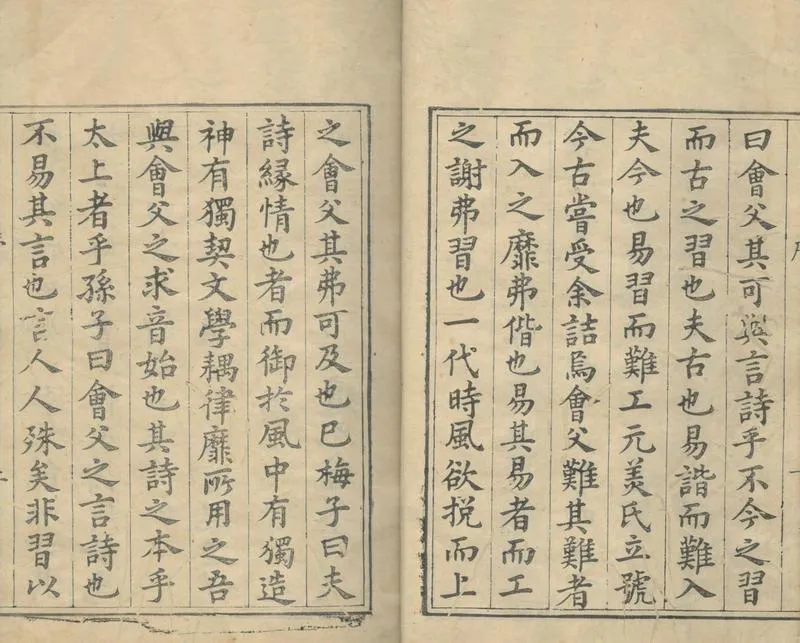 曰會父其可與言詩乎不今之習
而古之習也夫古也易諧而難入
夫今也易習而難工元美氏立號
今古嘗受余詰焉會父難其難者
而入之靡弗偕也易其易者而工
之謝弗習也一代時風欲挩而上
之會父其弗可及也已梅子曰夫
詩緣情也者而御於風中有獨造
神有獨契文學耦律靡所用之吾
與會父之求音始也其詩之本乎
太上者乎孫子曰會父之言詩也
不易其言也言人人殊矣非習以